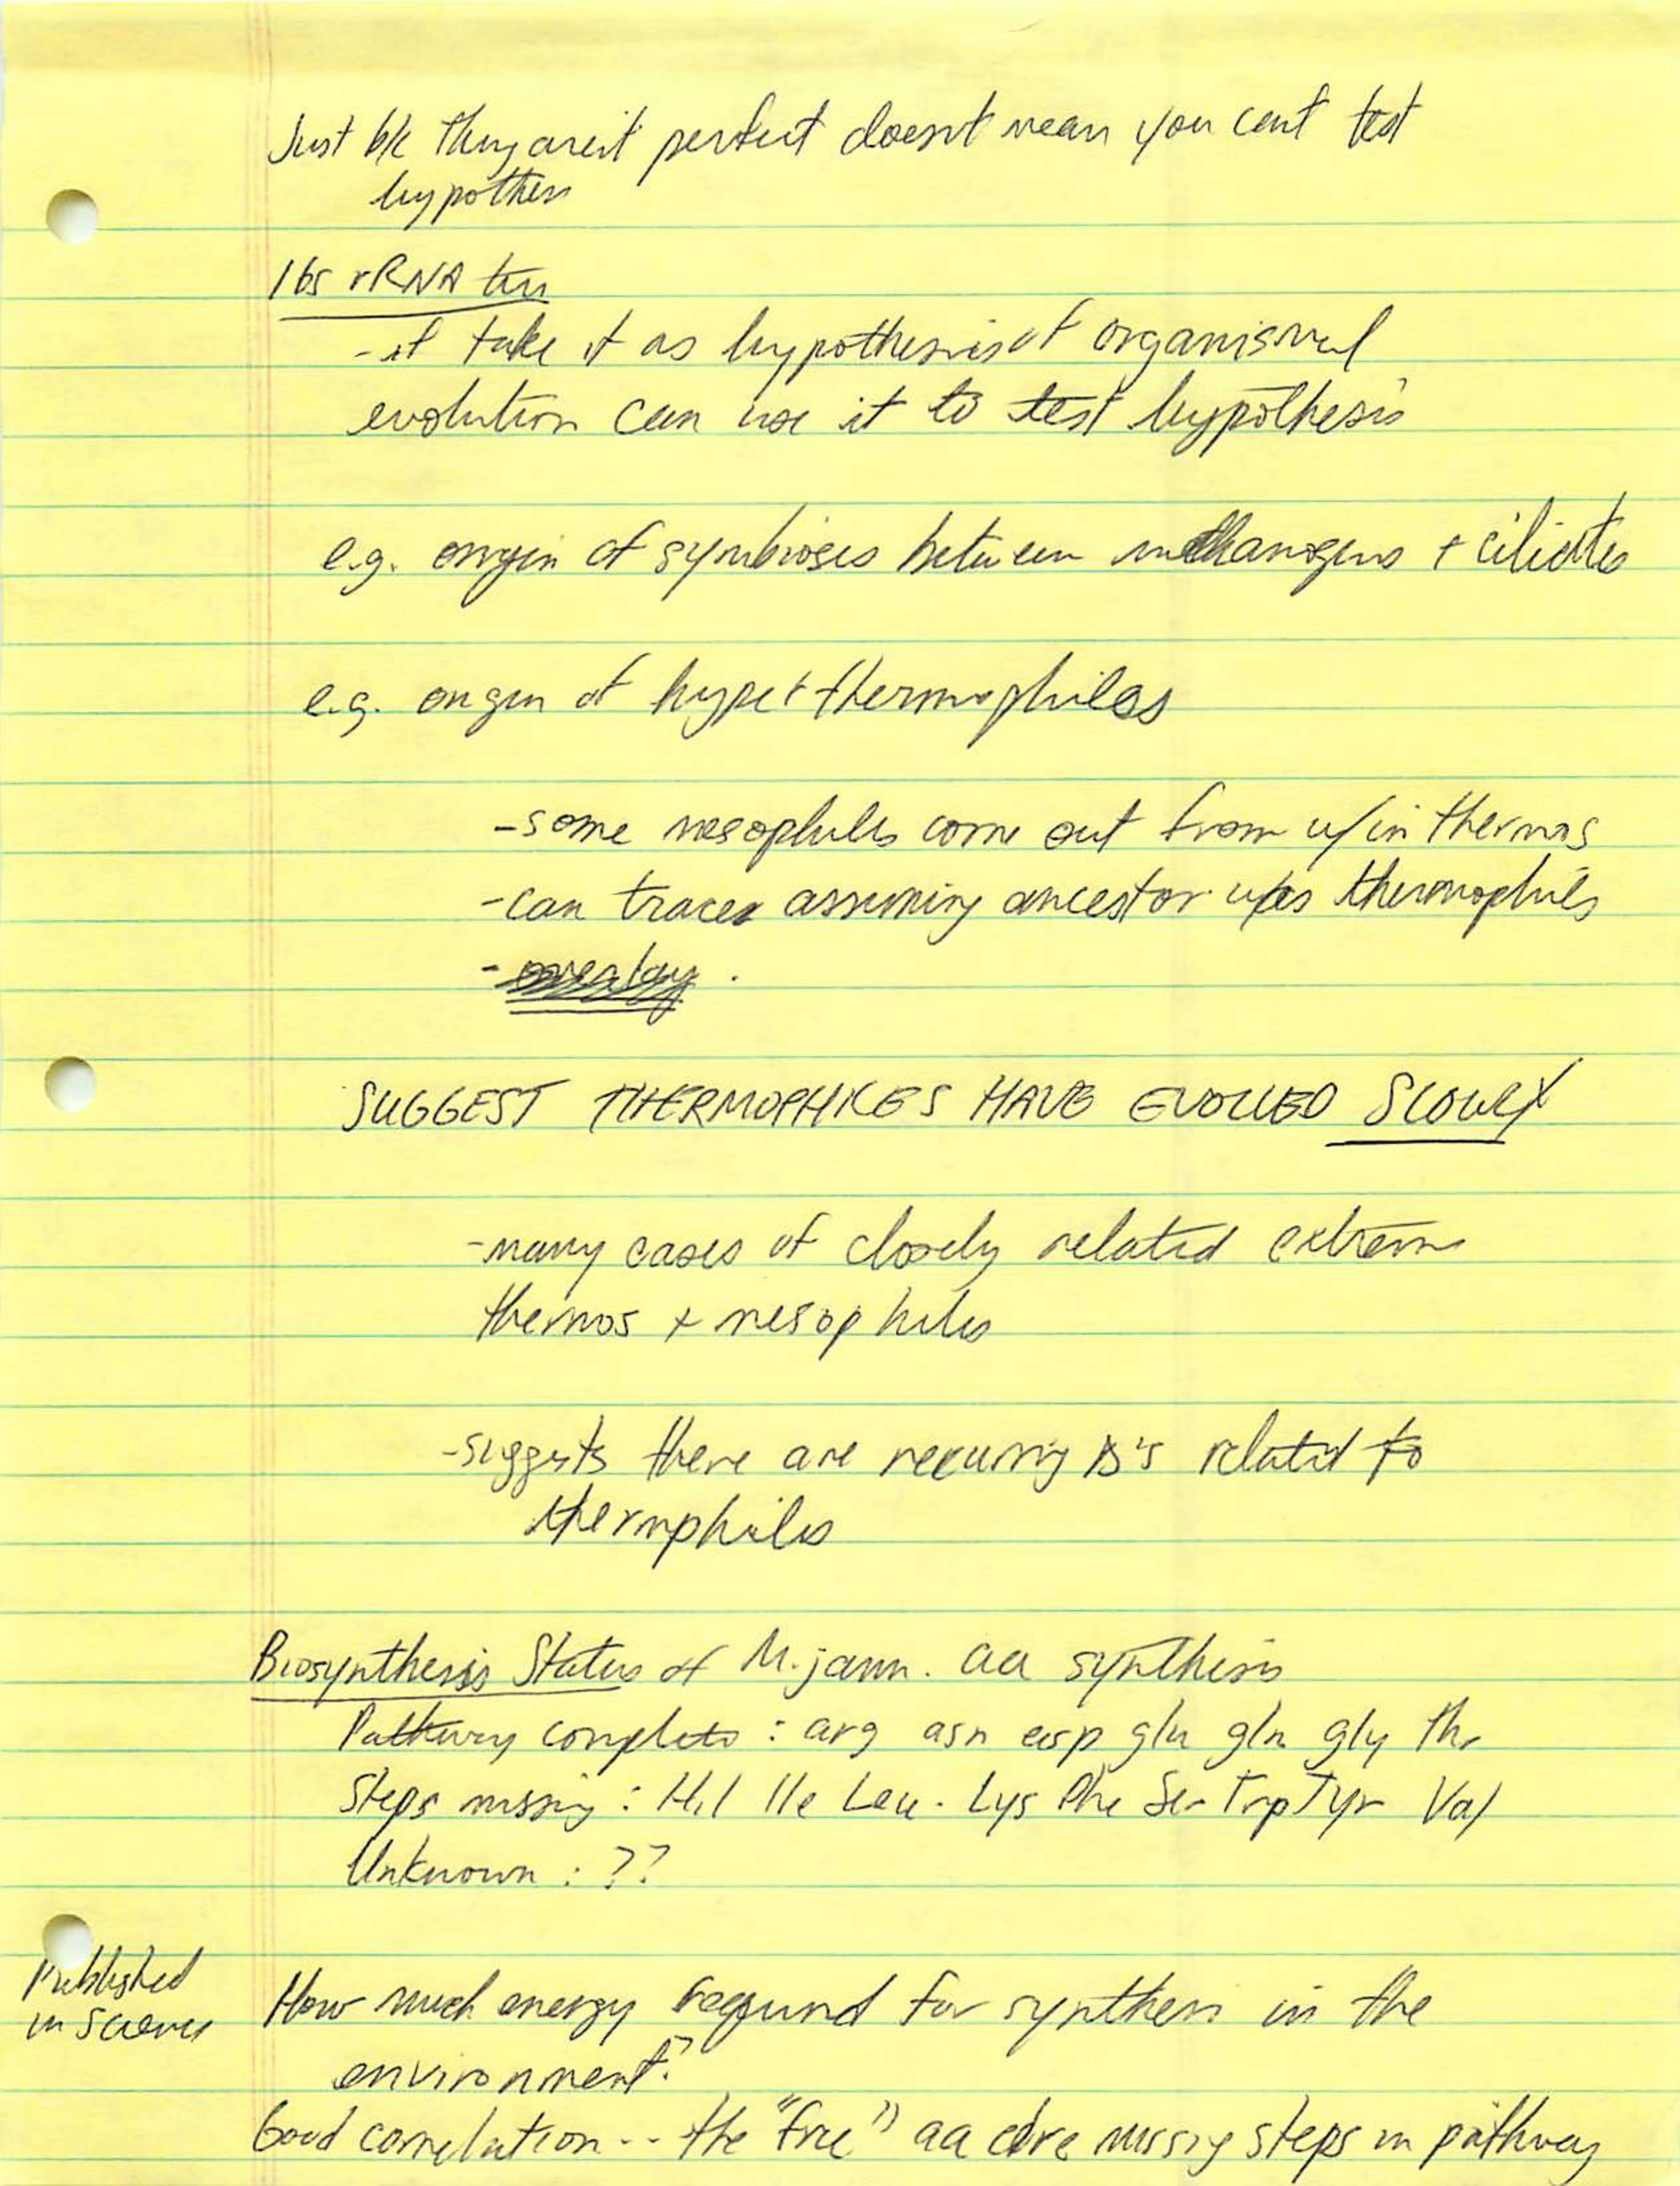 Just b/c they aren't perfect doesn't mean you can't test
hypothes
16s rRNA tree
- if take it as hypothesis of organismal
evolution can use it to test hypothesis
e.g. origin of symbioses between methanogens + ciliates
e.g. origin of hyperthermophiles
- some mesophiles come out from w/in thermos
- can trace assuming ancestor was thermophiles
- overlay.
SUGGEST THERMOPHILES HAVE EVOLVED SLOWLY
- many cases of closely related extreme
thermos + mesophiles
- suggests there are recurring Δ's related to
thermphiles
Biosynthesis Status of M. jann. aa synthesis
Pathway complete : arg asn asp glu gln gly thr
Steps missing : His Ile Leu. Lys Phe Ser Trp Tyr Val
Unknown : ??
Published
in Science
How much energy required for synthesis in the
environment?
Good correlation -- the "free" aa are missing steps in pathway